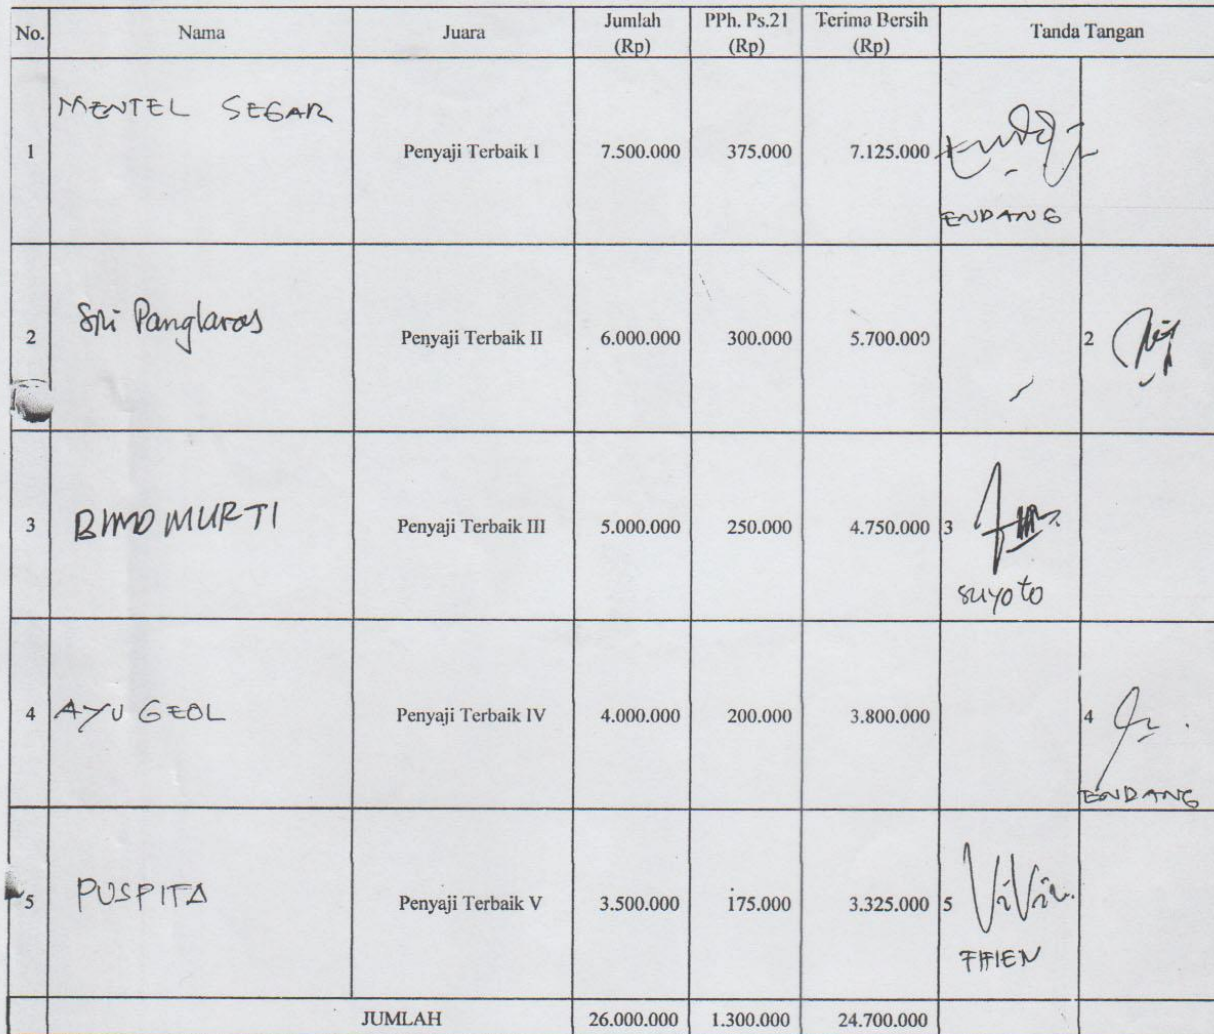 No. Nama Juara Jumlah (Rp) PPh. Ps.21 (Rp) Terima Bersih (Rp) Tanda Tangan
MENTEL SEGAR
1 Penyaji Terbaik I 7.500.000 375.000 7.125.000
ENDANG
2 Sri Panglaras Penyaji Terbaik II 6.000.000 300.000 5.700.000 2
3 BIMO MURTI Penyaji Terbaik III 5.000.000 250.000 4.750.000 3
suyoto
4 AYU GEOL Penyaji Terbaik IV 4.000.000 200.000 3.800.000 4
ENDANG
5 PUSPITA Penyaji Terbaik V 3.500.000 175.000 3.325.000 5 ViVin
FIFIEN
JUMLAH 26.000.000 1.300.000 24.700.000